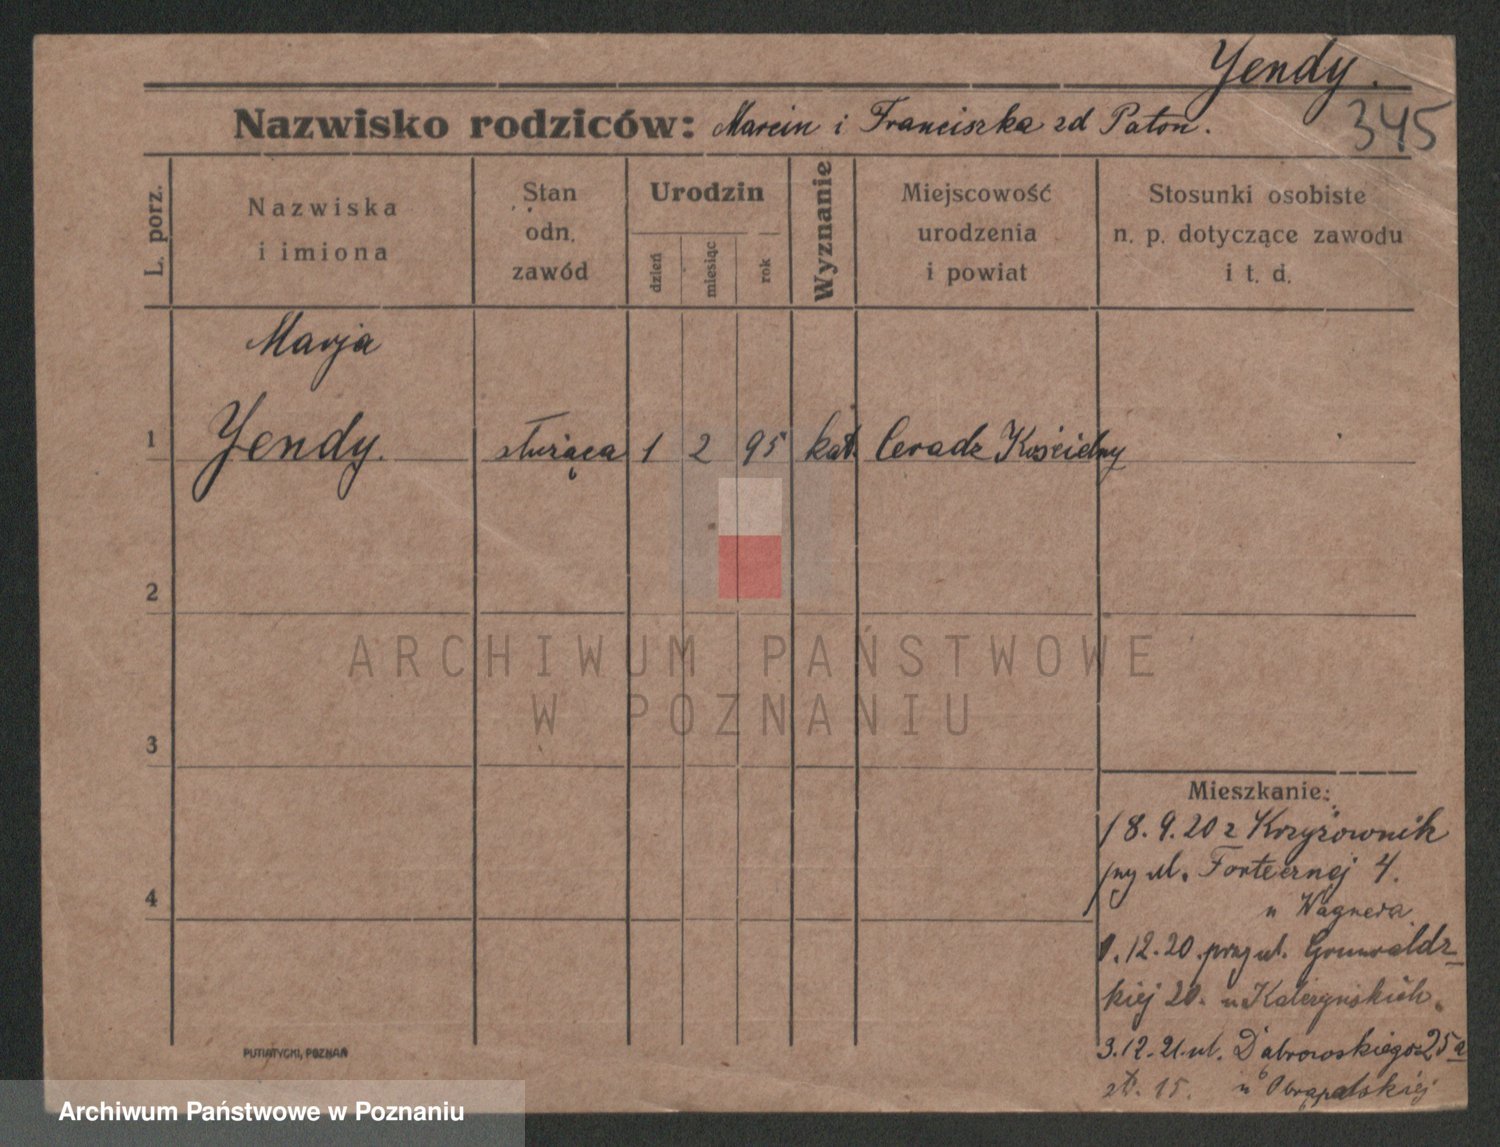 Yendy.
345
Nazwisko rodziców: Marcin i Franciszka zd Paton.
L. porz.
Nazwiska
i imiona
Stan
odn.
zawód
Urodzin
dzień
miesiąc
rok
Wyznanie
Miejscowość
urodzenia
i powiat
Stosunki osobiste
n. p. dotyczące zawodu
i t. d.
Marja
1 Yendy. służąca 1 2 95 kat. Ceradz Kościelny
2
ARCHIWUM PAŃSTWOWE
W POZNANIU
3
Mieszkanie:
18.9.20 z Krzyżownik
przy ul. Fortecznej 4.
4
u Wagnera
1.12.20. przy ul. Grunwaldz-
kiej 20. u
3.12.21. ul. Dąbrowskiego 25a
15. u
PUTIATYCKI, POZNAŃ
Archiwum Państwowe w Poznaniu